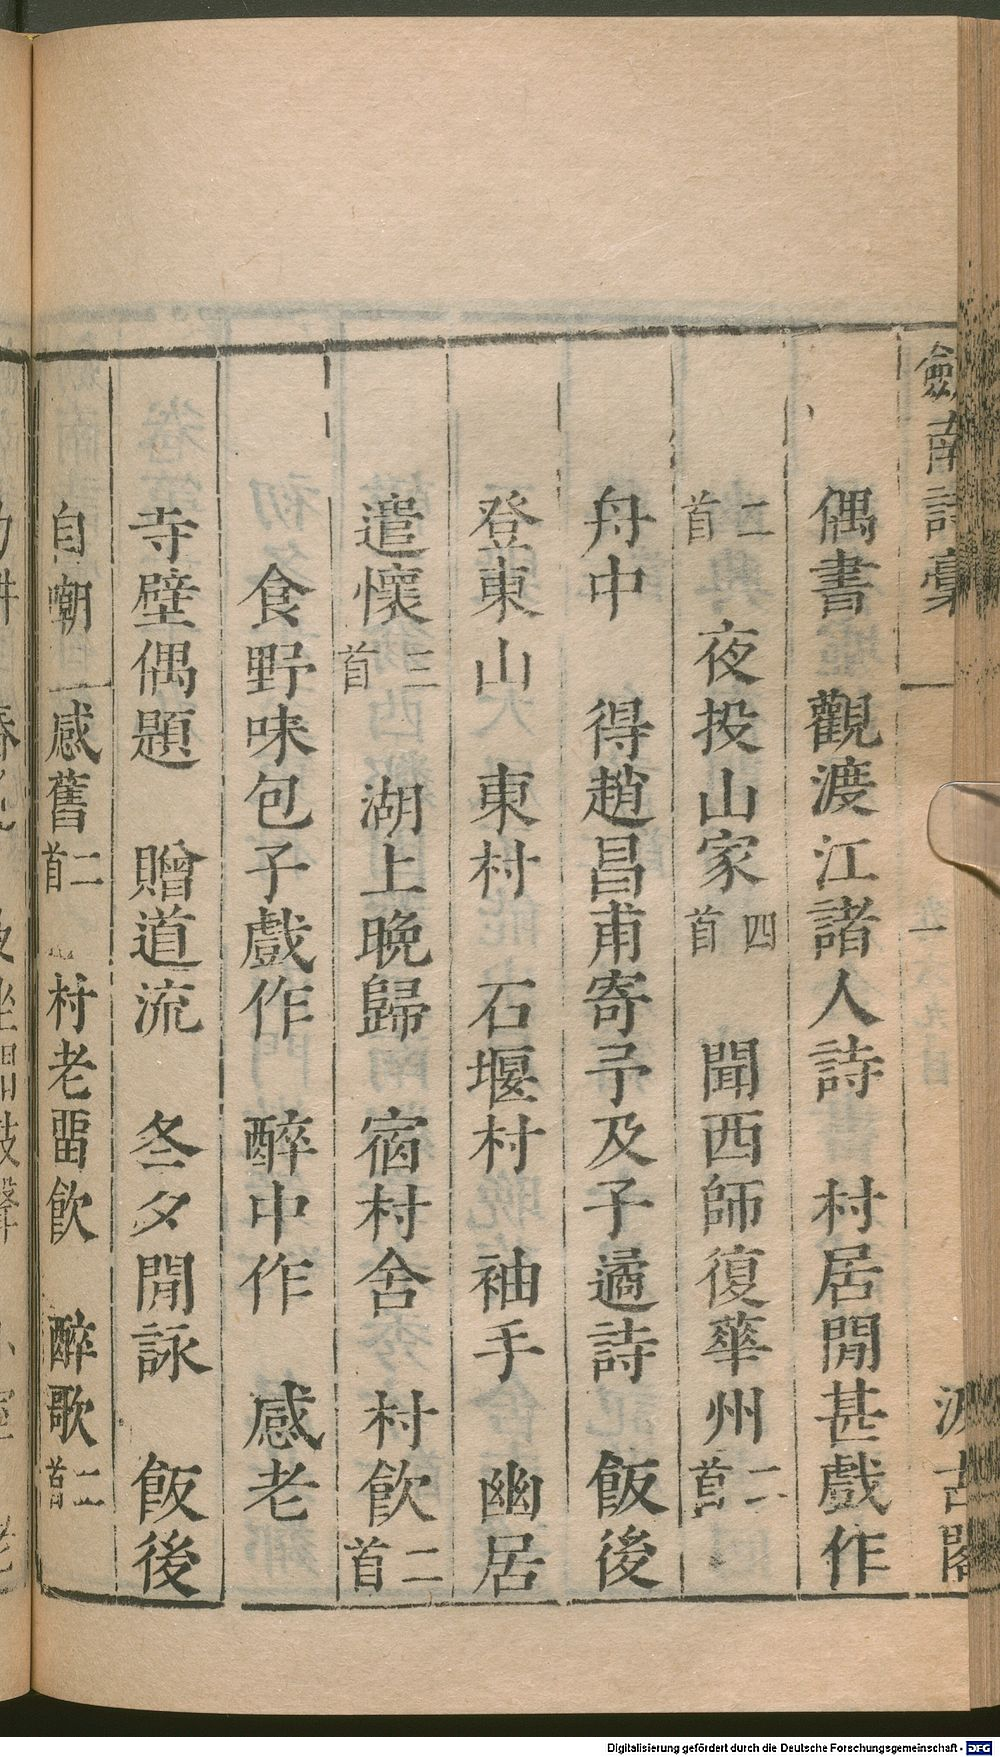 劍南詩稾
一
汲古閣
偶書　觀渡江諸人詩　村居閒甚戲作
二首　夜投山家四首　聞西師復華州二首
舟中　得趙昌甫寄予及子遹詩　飯後
登東山　東村　石堰村　袖手　幽居
遣懷三首　湖上晚歸　宿村舍　村飲二首
食野味包子戲作　醉中作　感老
寺壁偶題　贈道流　冬夕閒詠　飯後
自嘲　感舊二首　村老畱飲　醉歌二首
Digitalisierung gefördert durch die Deutsche Forschungsgemeinschaft - DFG